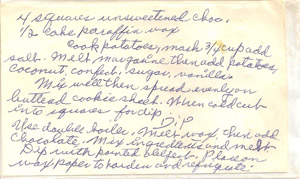 4 squares unsweetened choc.
1/2 cake paraffin wax
Cook potatoes, mash 3/4 cup add
salt. Melt margarine then add potatoes,
coconut, confect. sugar, vanilla.
Mix well then spread evenly on
buttered cookie sheet. When cold cut
into squares for dip.
Dip
Use double boiler. Melt wax, then add
chocolate. Mix ingredients and melt
Dip with pointed. Place on
wax paper to harden and refrigerate.